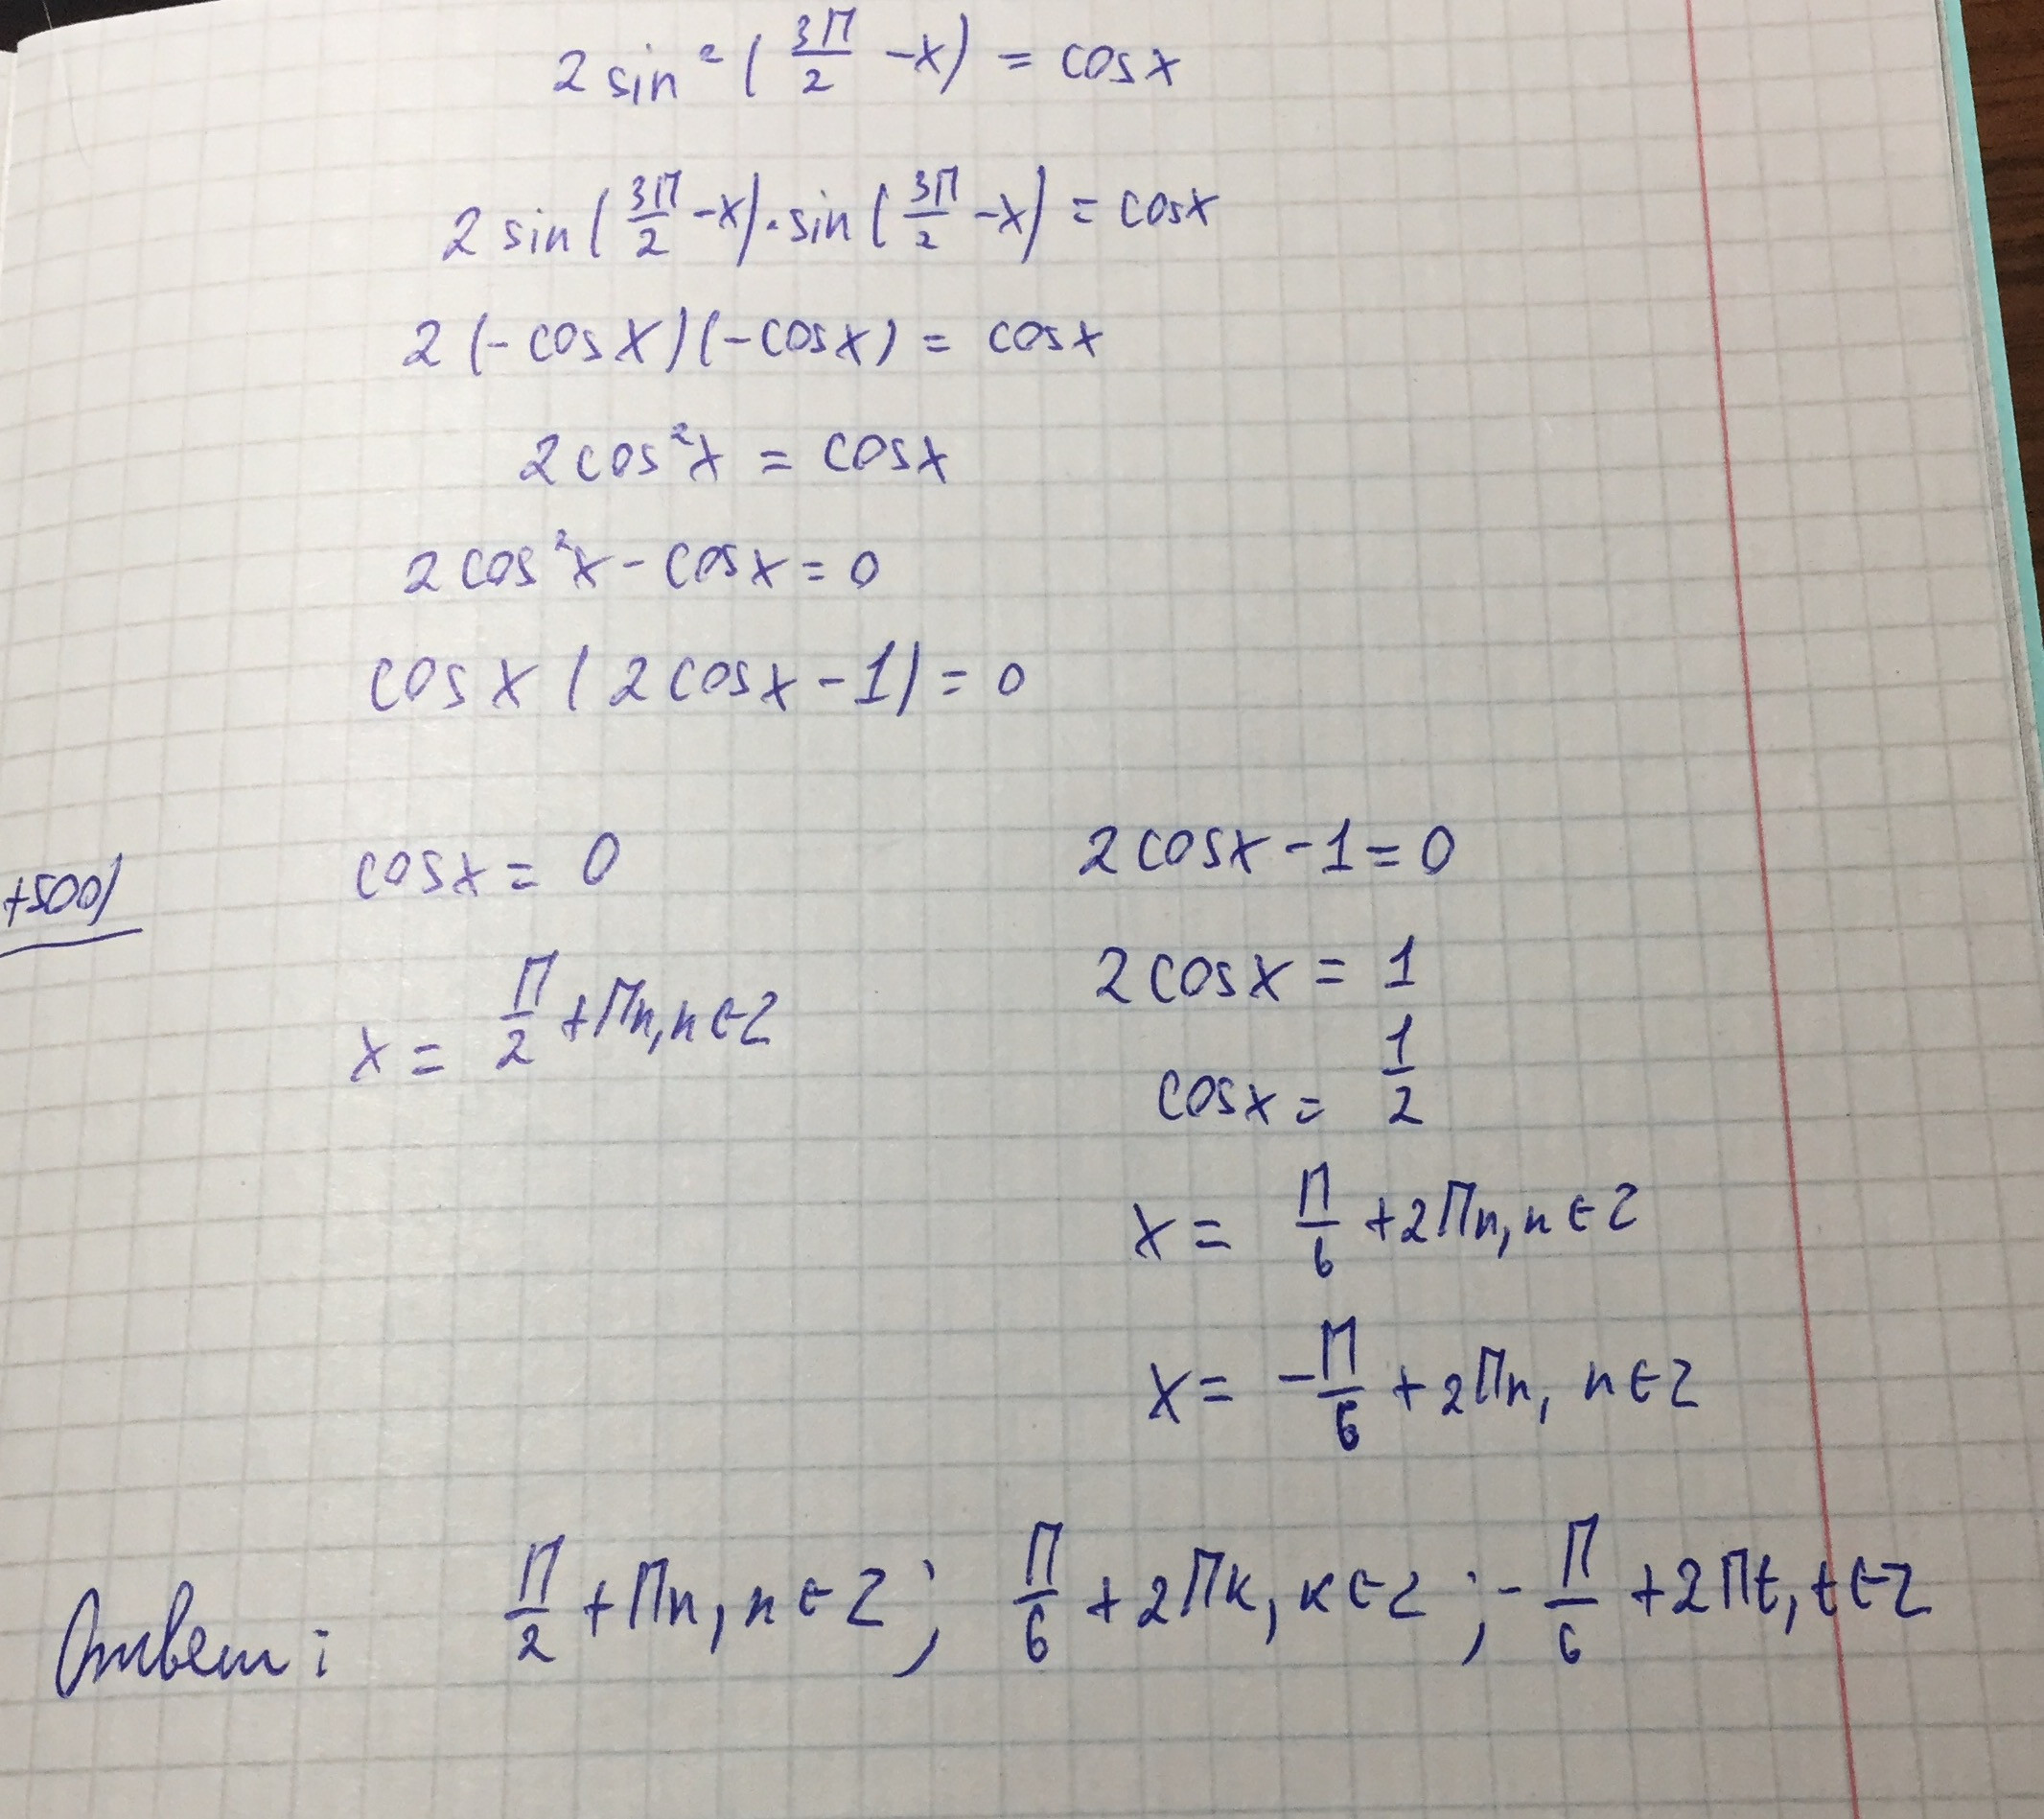 2 sin² ( 3П/2 - x ) = cosx
2 sin ( 3П/2 - x ) · sin ( 3П/2 - x ) = cosx
2 (- cos x) (- cosx) = cosx
2 cos²x = cosx
2 cos²x - cosx = 0
cos x ( 2 cosx - 1 ) = 0
+500)
cosx = 0
x = П/2 + Пn, n ∈ Z
2 cosx - 1 = 0
2 cosx = 1
cosx = 1/2
x = П/6 + 2Пn, n ∈ Z
x = - П/6 + 2Пn, n ∈ Z
Ответ: П/2 + Пn, n ∈ Z ; П/6 + 2Пк, к ∈ Z ; - П/6 + 2Пt, t ∈ Z